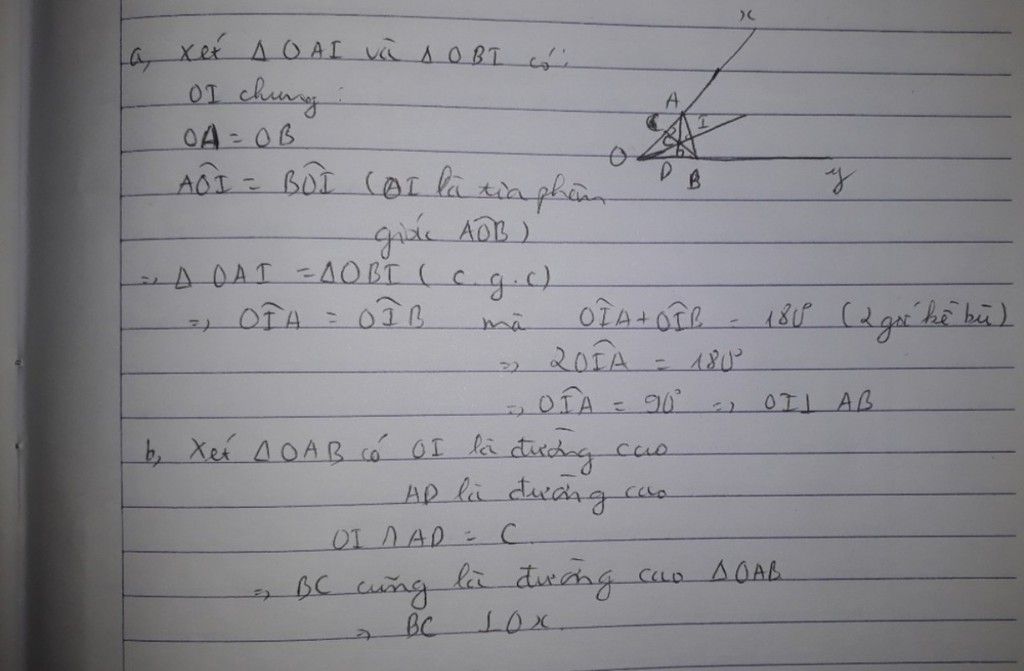 a, Xét Δ OAI và Δ OBI có:
OI chung:
OA = OB
AÔI = BÔI (OI là tia phân
giác AÔB)
=> Δ OAI = ΔOBI ( c.g.c)
=> OÎA = OÎB mà OÎA + OÎB = 180° (2 góc kề bù)
=> 2OÎA = 180°
=> OÎA = 90° => OI⊥ AB
b, Xét ΔOAB có OI là đường cao
AD là đường cao
OI ∩ AD = C
=> BC cũng là đường cao ΔOAB
=> BC ⊥ Ox.
x
A
C
I
O
D
B
y